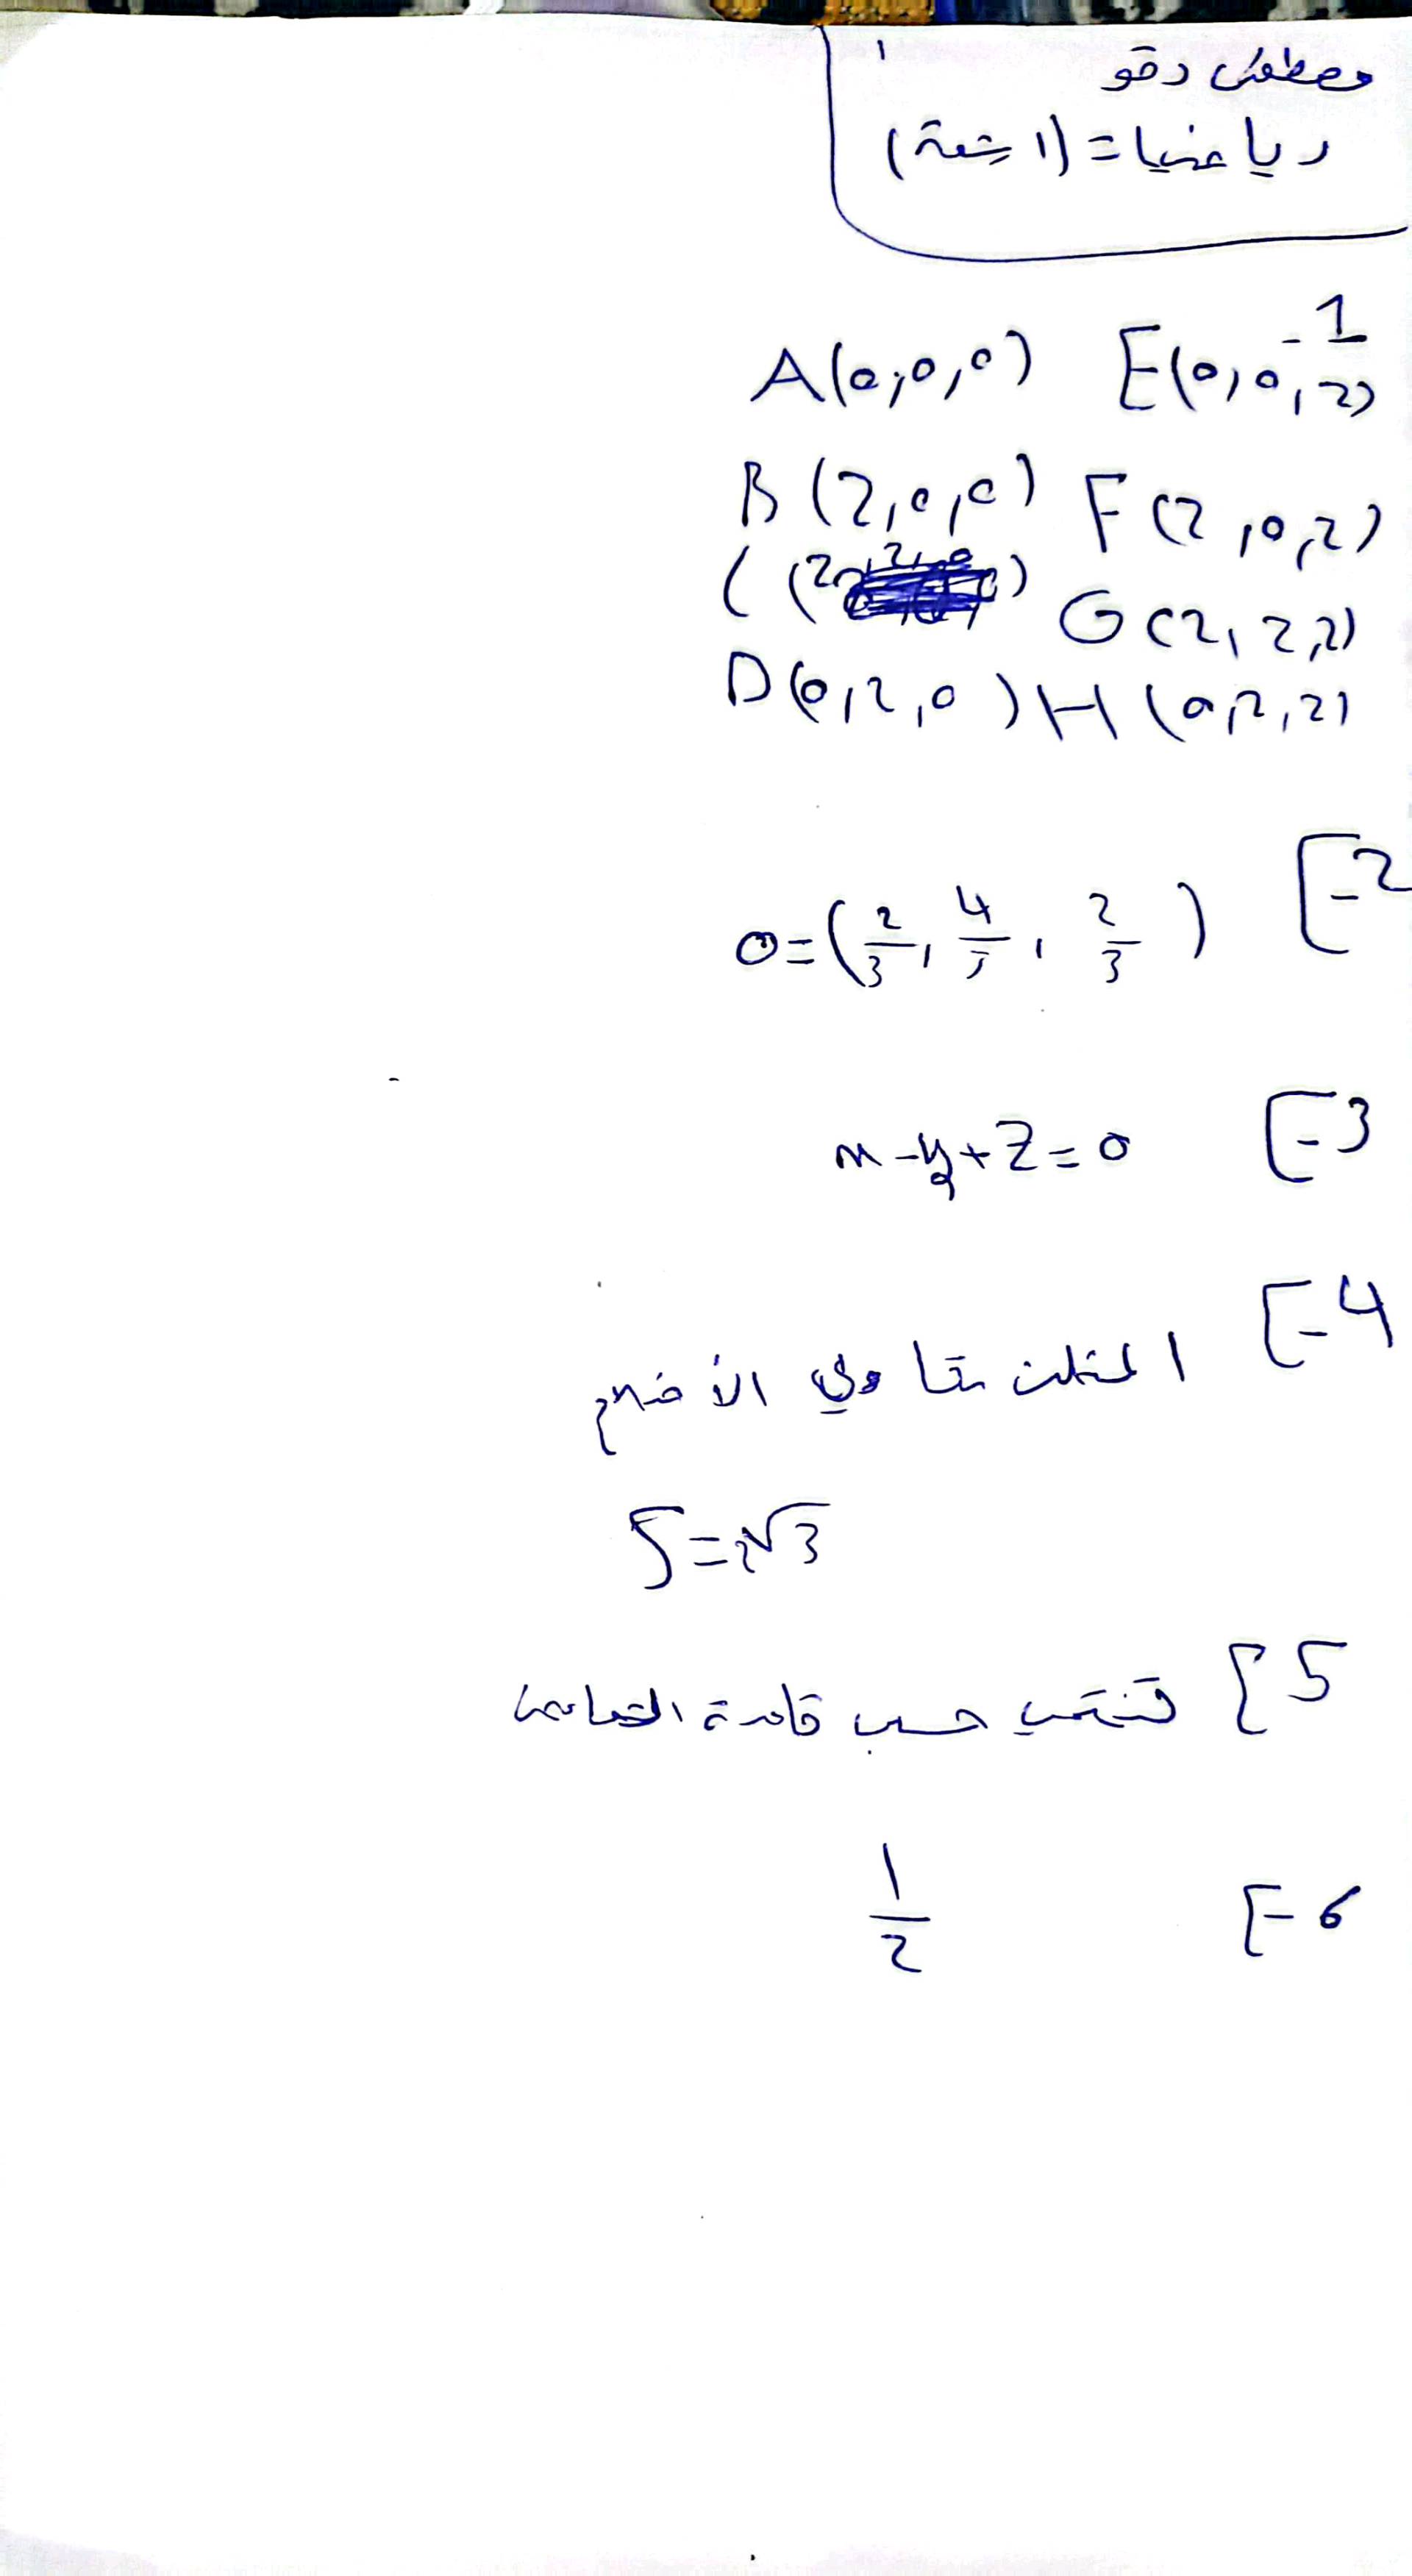 مصطفى دقو
رياضيا = (١ شعة)
1 -
A(0,0,0) E(0,0,2)
B(2,0,0) F(2,0,2)
C(2,2,0) G(2,2,2)
D(0,2,0) H(0,2,2)
2 -
O = (2/3, 4/3, 2/3)
3 -
x - y + z = 0
4 -
المثلث متساوي الأضلاع
S = 2√3
5
تنتمي حسب قاعدة
6 -
1/2